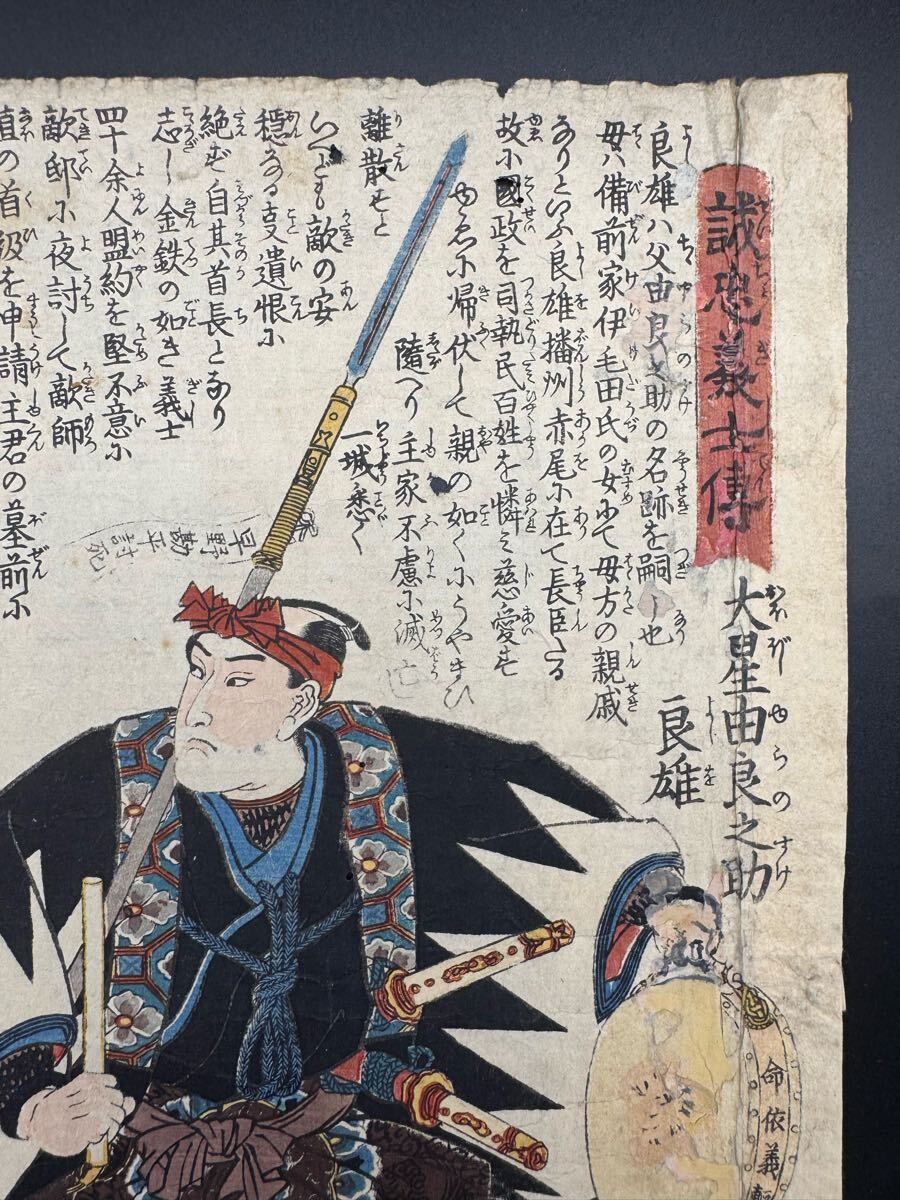 誠忠義士傳
大星由良之助
良雄
良雄ハ父由良之助の名跡を嗣し也
母ハ備前家伊毛田氏の女にて母方の親戚
なりといふ良雄播州赤尾に在て長臣たる
故に國政を司執民百姓を憐ミ慈愛せ
ゆゑに帰伏して親の如くにうやまひ
随へり主家不慮に滅亡
一城悉く
離散すと
いへども敵の安
穏なる支遺恨に
絶ず自其首長となり
志し金鉄の如き義士
四十余人盟約を堅不意に
敵邸に夜討して敵師
直の首級を申請主君の墓前に
早野
勘平
討死
命依義軽